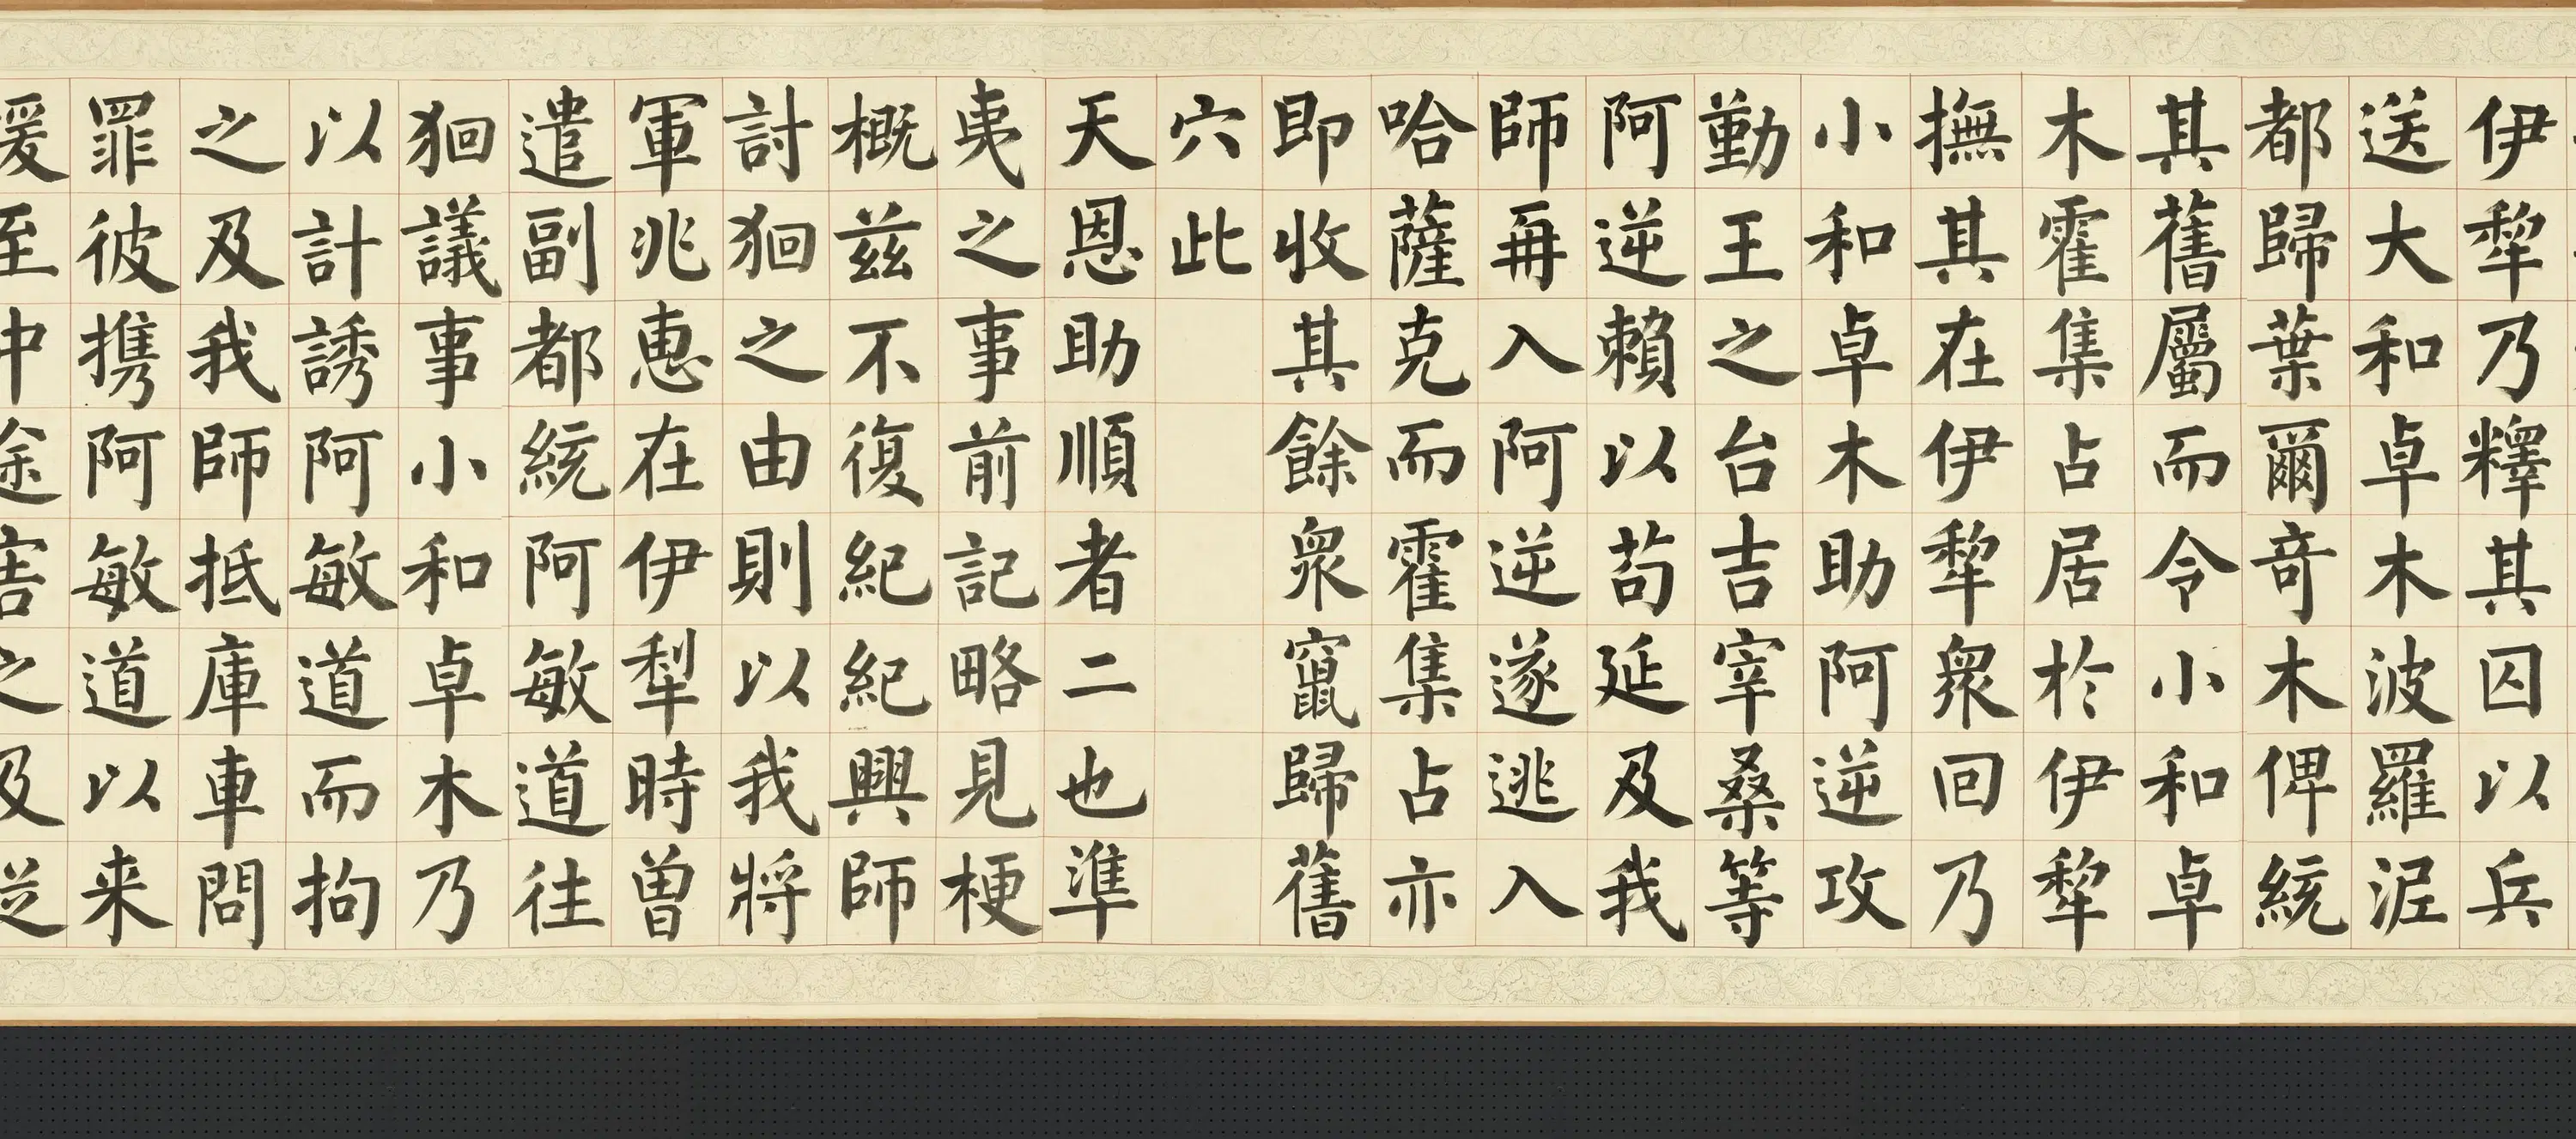 伊犂乃釋其囚以兵
送大和卓木波羅泥
都歸葉爾竒木俾統
其舊屬而令小和卓
木霍集占居於伊犂
撫其在伊犂衆回乃
小和卓木助阿逆攻
勤王之台吉宰桑等
阿逆賴以苟延及我
師再入阿逆遂逃入
哈薩克而霍集占亦
即收其餘衆竄歸舊
穴此
天恩助順者二也準
夷之事前記略見梗
概兹不復紀紀興師
討狪之由則以我將
軍兆惠在伊犂時曽
遣副都統阿敏道往
狪議事小和卓木乃
以計誘阿敏道而拘
之及我師抵庫車問
罪彼携阿敏道以来
援至中途害之及従